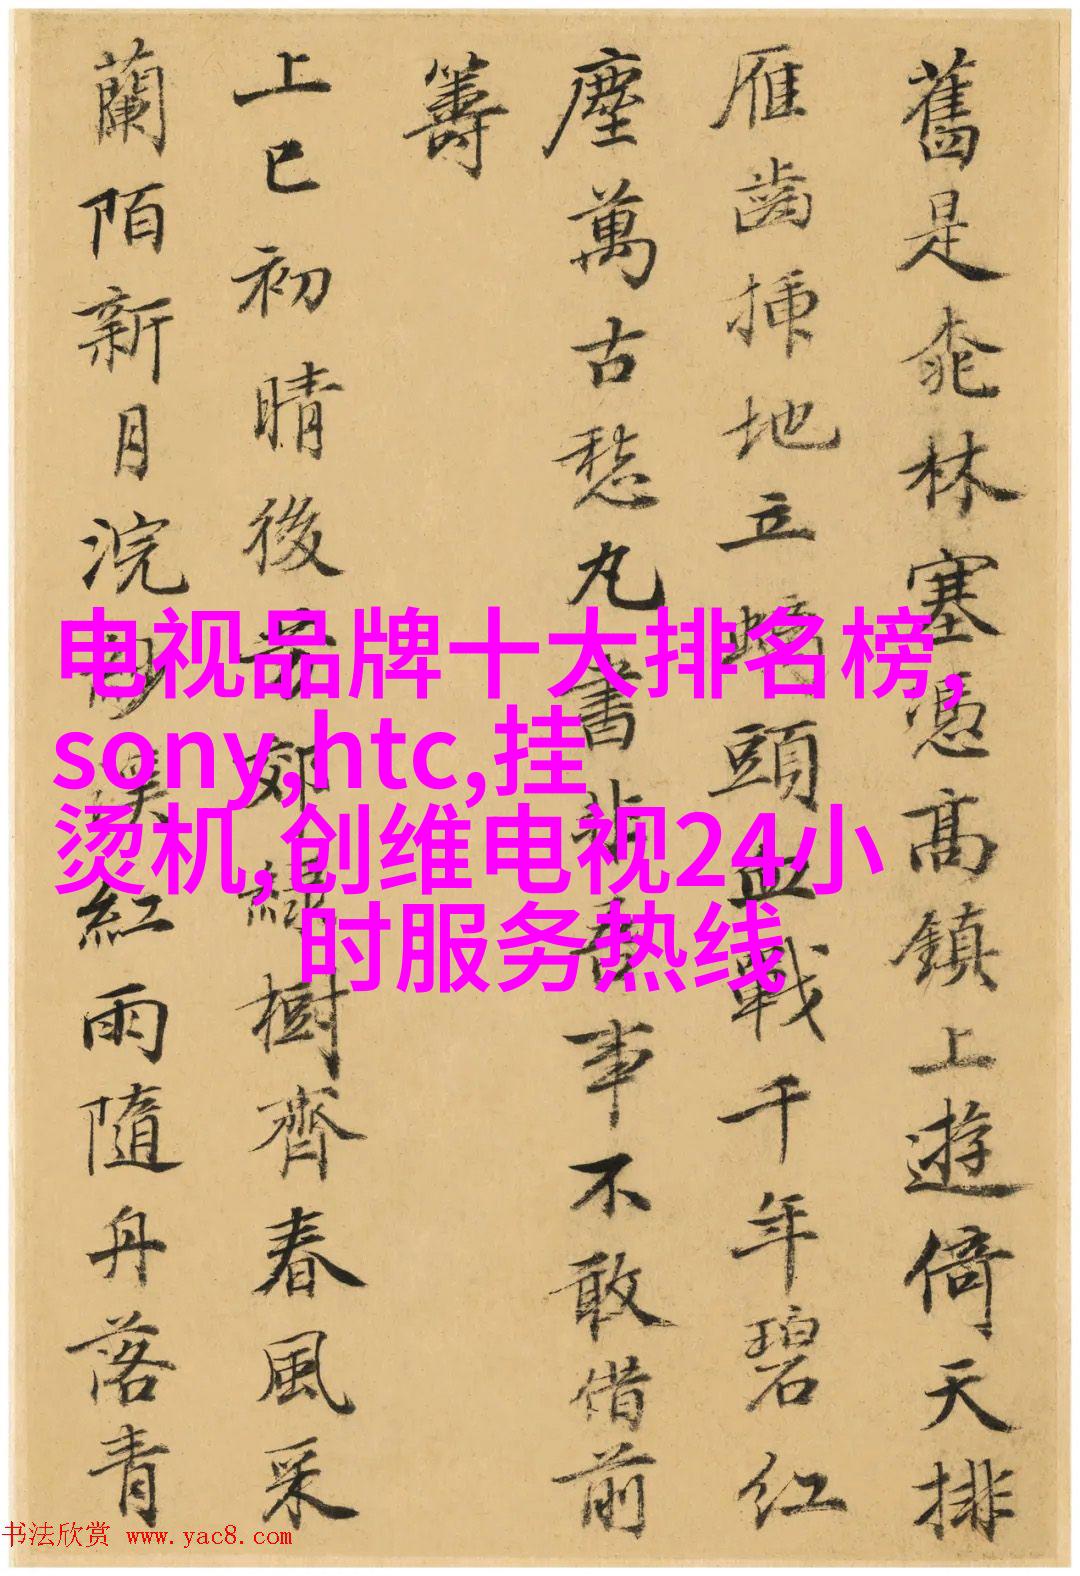 舊是𠅤林塞憑高鎮上遊倚天排
雁齒插地立螭頭血戰千年碧紅
塵萬古愁丸書非舊事不敢借前
籌
上巳初晴後芳郊綠樹齊春風采
蘭陌新月浣沙溪紅雨隨舟落青
电视品牌十大排名榜,
sony,htc,挂
烫机,创维电视24小
时服务热线
书法欣赏 www.yac8.com